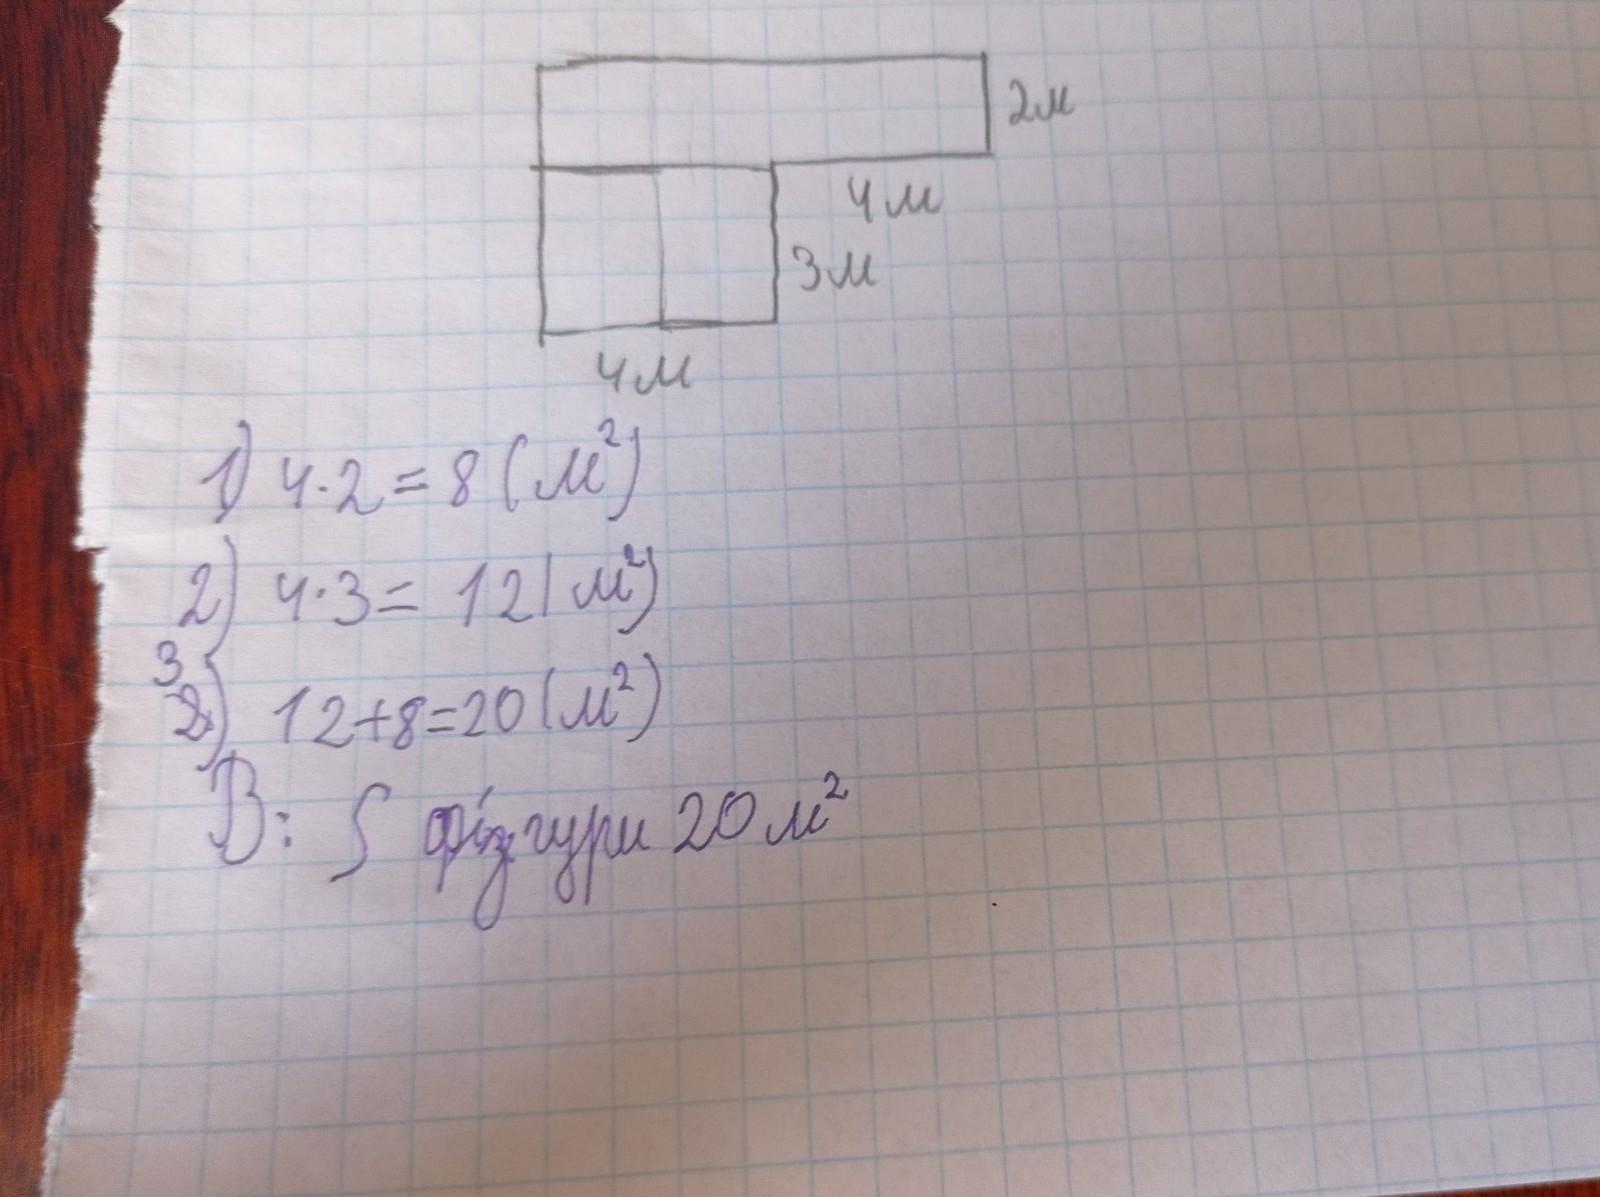 2м
4м
3м
4м
1) 4·2=8(м²)
2) 4·3= 12(м²)
3) 12+8=20(м²)
В: S фігури 20м²